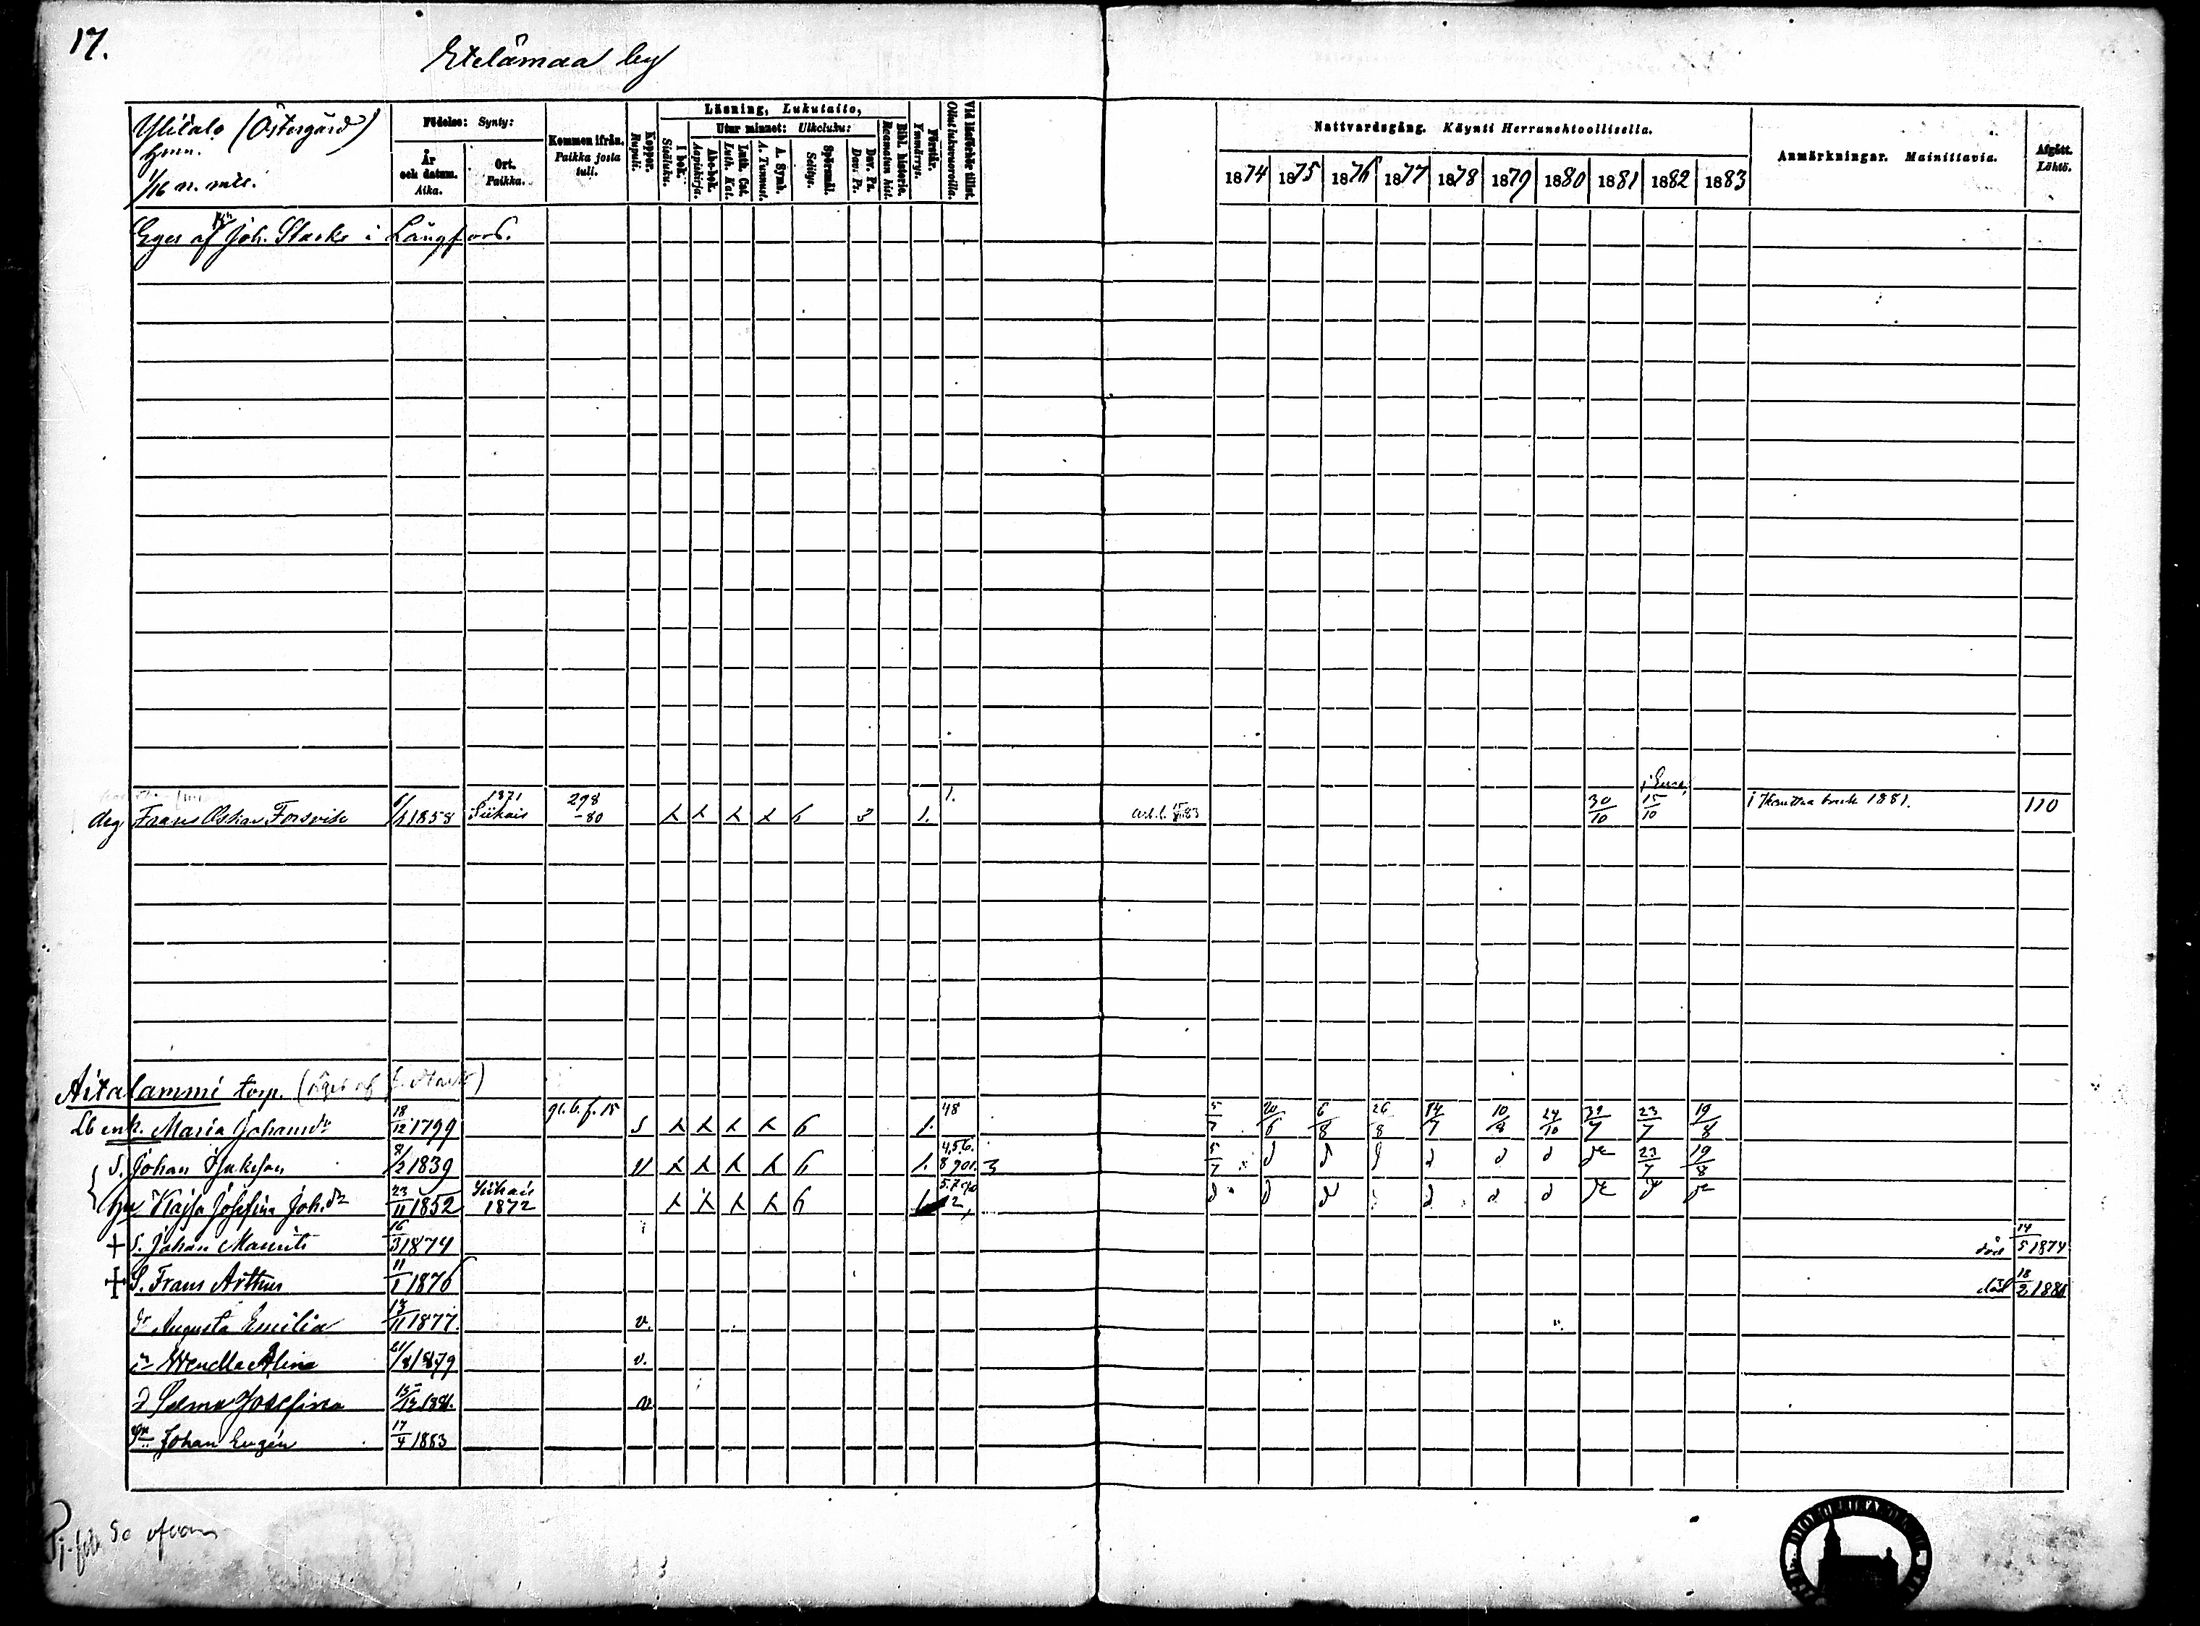 17.
Etelämaa by
Ylitalo (Östergård)
hmn.
1/16 n. mtl.
Födelse: Synty:
År och datum. Aika.
Ort. Paikka.
Kommen ifrån. Paikka josta tuli.
Koppor. Rupuli.
Läsning, Lukutaito,
I bok. Sisäluku.
Utur minnet: Ulkoluku:
Abc-bok. Aapiskirja.
Luth. Cat. Luth. Kat.
A. Symb. A. Tunnust.
Spörsmål. Selitys.
Dav. Ps. Dav. Ps.
Bibl. historia. Raamatun hist.
Förstår. Ymmärrys.
Vid läseförhör tillst. Ollut lukuvuorolla.
Nattvardsgång. Käynti Herranehtoollisella.
1874 1875 1876 1877 1878 1879 1880 1881 1882 1883
Anmärkningar. Mainittavia.
Afgått. Lähtö.
Eges af Joh. Starke i Långfors.
drg Frans Oskar Forsvik 6/1 1858 1871 Siikais 298 -80 x x x x 6 3 1. 1. 15/8 83 30/10 15/10 i Kauttua bruk 1881. 110
Aitalammi torp.
enk. Maria Johansdr 18/12 1799 gl. b. f. 15 s x x x x 6 1. 48 5/7 20/6 6/8 26/8 14/7 10/8 24/10 31/7 23/7 19/8
S. Johan Isaksson 8/2 1839 v x x x x 6 1. 3 5/7 d d d d d d 23/7 19/8
hu Kajsa Josefina Joh.dr 23/11 1852 Siikais 1872 x x x x 6 12, d d d d d d
+ S. Johan Maurits 16/3 1874 död 14/5 1874
+ S. Frans Arthur 11/1 1876 död 18/2 1880
dr Augusta Emilia 13/11 1877. v.
Wendla Alina 21/8 1879 v.
d Selma Josefina 15/12 1881. v
Johan Eugén 17/4 1883